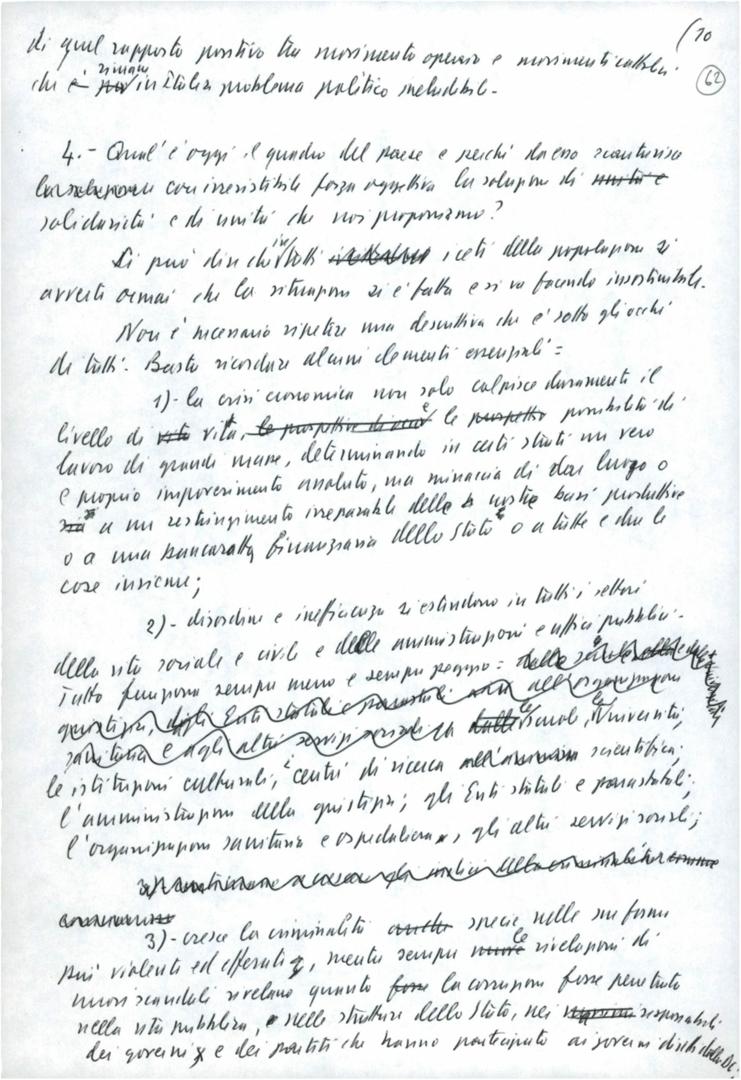 (10
62
di quel rapporto positivo tra movimento operaio e movimenti cattolici
che è rimane in Italia problema politico ineludibile.
4.- Qual'è oggi il quadro del paese e perché da esso scaturisce
con irresistibile forza oggettiva la soluzione di unità e
solidarietà e di unità che noi proponiamo?
Si può dire che in tutti i ceti della popolazione si
avverte ormai che la situazione si è fatta e si va facendo insostenibile.
Non è necessario ripetere una descrittiva che è sotto gli occhi
di tutti. Basta ricordare alcuni elementi essenziali:
1)- la crisi economica non solo colpisce duramente il
livello di vita vita, le prospettive di e le prospettive possibilità di
lavoro di grandi masse, determinando in certi strati un vero
e proprio impoverimento assoluto, ma minaccia di dar luogo o
a un restringimento irreparabile delle nostre basi produttive
o a una bancarotta finanziaria dello Stato o a tutte e due le
cose insieme;
2)- disordine e inefficienza si estendono in tutti i settori
della vita sociale e civile e delle amministrazioni e uffici pubblici.
Tutto funziona sempre meno e sempre peggio:
giustizia, degli Enti statali e parastatali
sanitaria e degli altri servizi sociali le scuole, le Università,
le istituzioni culturali, i centri di ricerca scientifica;
l'amministrazione della giustizia; gli Enti statali e parastatali;
l'organizzazione sanitaria e ospedaliera, gli altri servizi sociali;
3)- cresce la criminalità anche specie nelle sue forme
più violente ed efferate, mentre sempre nuove le rivelazioni di
nuovi scandali rivelano quanto fosse la corruzione fosse penetrata
nella vita pubblica, e nelle strutture dello Stato, nei responsabili
dei governi e dei partiti che hanno partecipato ai governi diretti dalla DC;